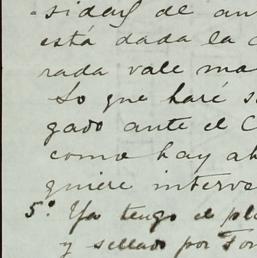 sidad de an
está dada la c
rada vale ma
Lo que haré s
gado ante el C
como hay ah
quiere interve
5º. Ya tengo el pl
y sellado por Fon